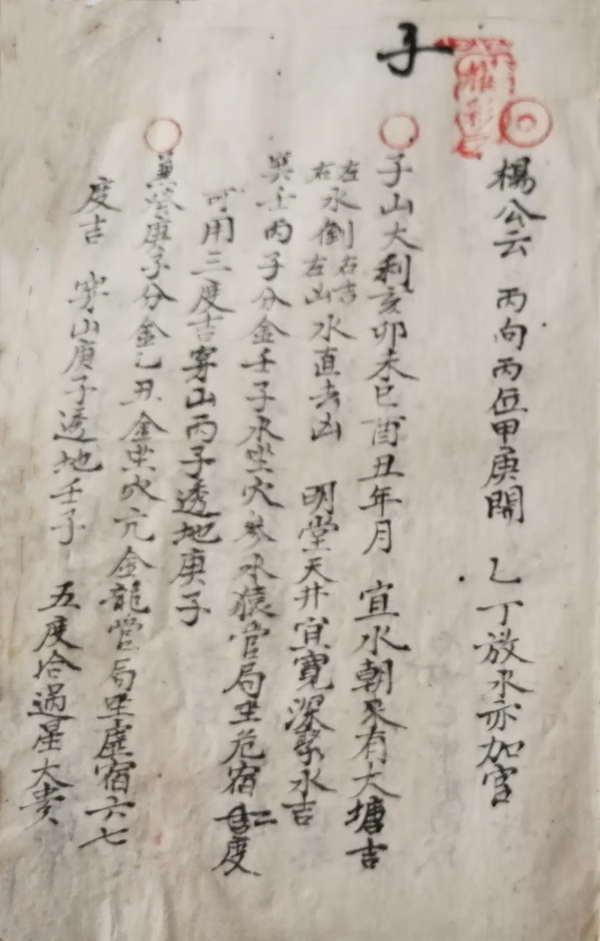 子
楊公云 丙向丙位甲庚開 乙丁放水亦加官
子山大利亥卯未巳酉丑年月 宜水朝來有大塘吉
左右水倒右左吉山水直去凶 明堂天井宜寬深聚水吉
兼壬丙子分金壬子水坐穴參水猿管局坐危宿二度
可用三度吉穿山丙子透地庚子
兼癸庚子分金乙丑金坐穴亢金龍管局坐虛宿六七
度吉 穿山庚子透地壬子 五度恰遇星大貴